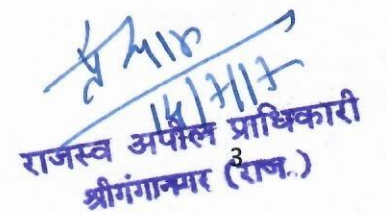 14/7/17
राजस्व अपील प्राधिकारी
3
श्रीगंगानगर (राज.)